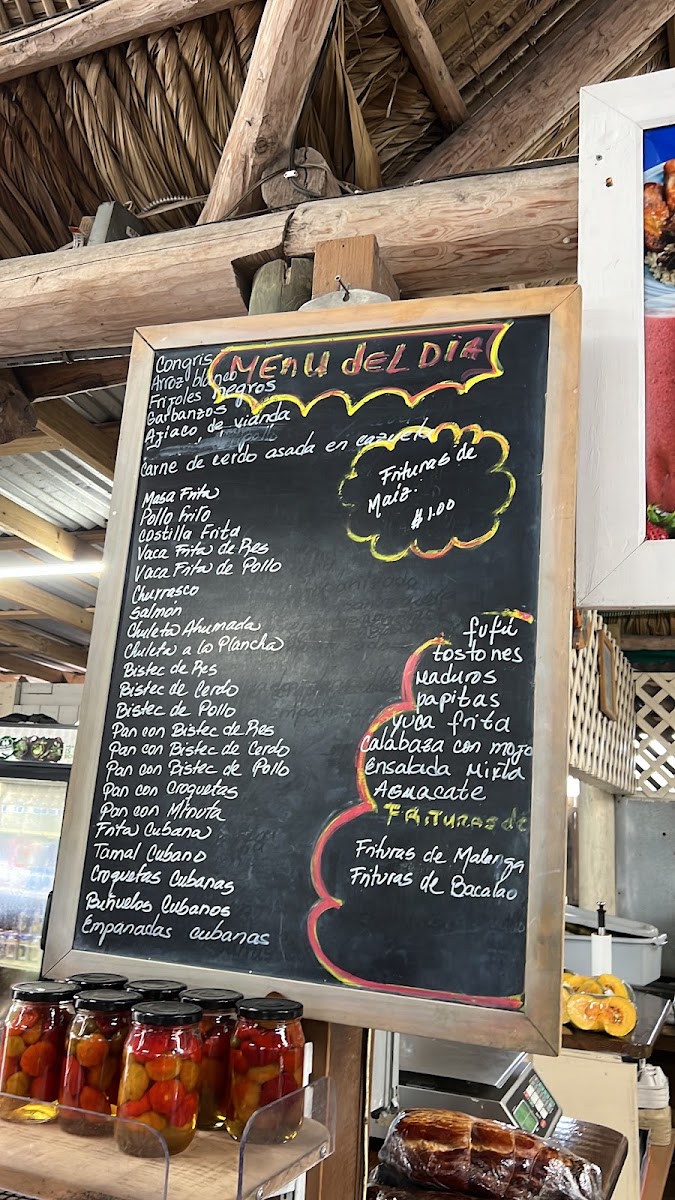 MENU DEL DIA
Congris
Arroz blanco
Frijoles negros
Garbanzos
Ajiaco de vianda
Carne de Cerdo asada en cazuela
Masa Frita
Pollo frito
Costilla Frita
Vaca Frita de Res
Vaca Frita de Pollo
Churrasco
Salmon
Chuleta Ahumada
Chuleta a la Plancha
Bistec de Res
Bistec de Cerdo
Bistec de Pollo
Pan con Bistec de Res
Pan con Bistec de Cerdo
Pan con Bistec de Pollo
Pan con Croquetas
Pan con Minuta
Frita Cubana
Tamal Cubano
Croquetas Cubanas
Buñuelos Cubanos
Empanadas cubanas
Frituras de
Maíz.
$1.00
fufú
tostones
Maduros
papitas
Yuca frita
Calabaza con mojo
Ensalada Mixta
Aguacate
Frituras de
Frituras de Malanga
Frituras de Bacalao